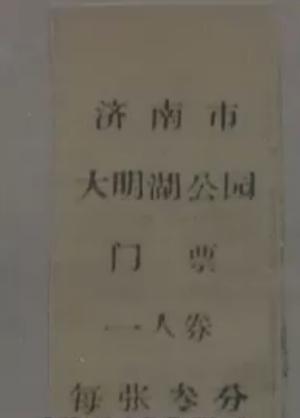 济南市
大明湖公园
门票
一人券
每张叁分